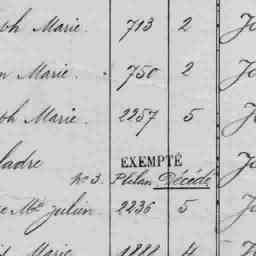 ph Marie. 713 2 Jo
n Marie. 750 2 Jo
ph Marie. 2257 5 J
ladre EXEMPTÉ
No 3. Plélan Décédé
e Me Julien 2236 5 Jo
Marie 1888 4 Jo